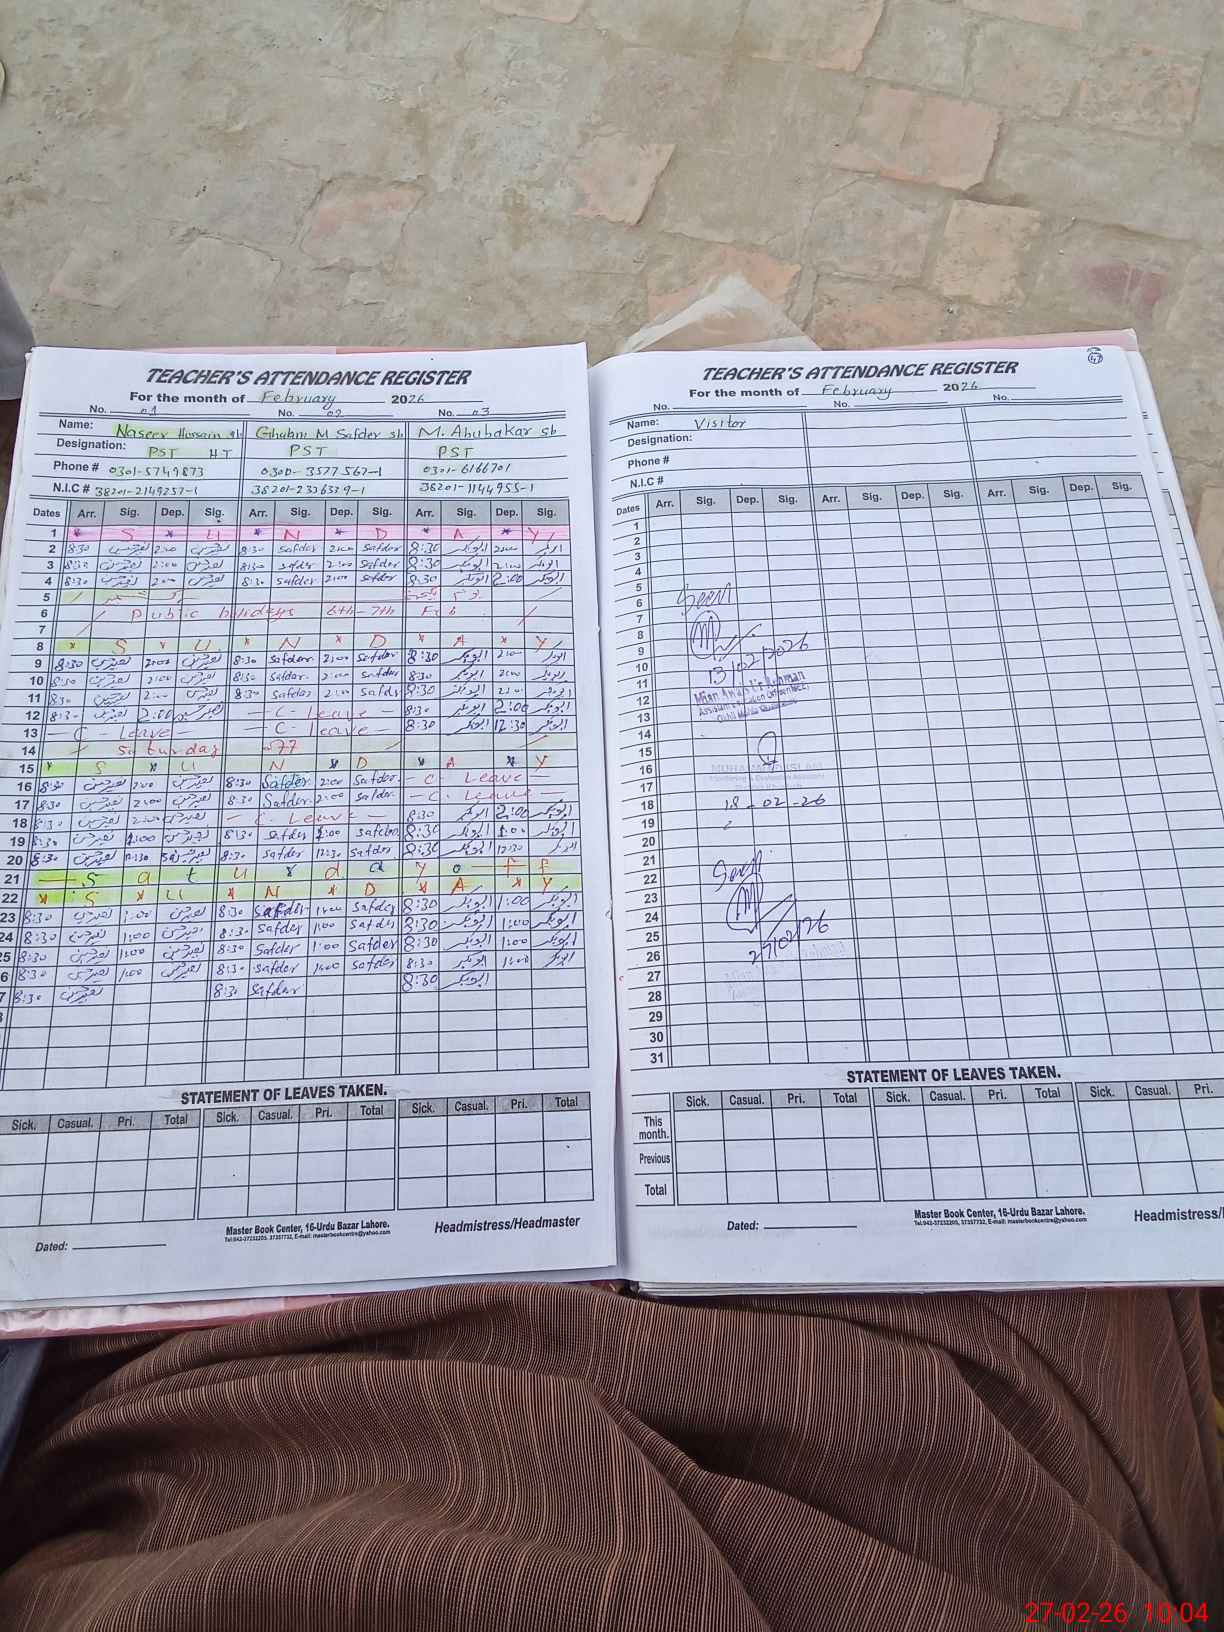 TEACHER'S ATTENDANCE REGISTER
For the month of February 2026
No. 01 No. 02 No. 03
Name: Naseer Hussain sb Ghulam M Safder sb M. Abubakar sb
Designation: PST HT PST PST
Phone # 0301-5749873 0300-3577567-1 0301-6166701
N.I.C # 38201-2149257-1 38201-2336329-1 38201-1144955-1
Dates Arr. Sig. Dep. Sig. Arr. Sig. Dep. Sig. Arr. Sig. Dep. Sig.
1 * S * U * N * D * A * Y
2 8:30 2:00 8:30 Safder 2:00 Safder 8:30 ابوبکر 2:00 ابوبکر
3 8:30 2:00 8:30 Safder 2:00 Safder 8:30 ابوبکر 2:00 ابوبکر
4 8:30 2:00 8:30 Safder 2:00 Safder 8:30 ابوبکر 2:00 ابوبکر
5
6 Public holidays 6th-7th Feb
7
8 * S * U * N * D * A * Y
9 8:30 2:00 8:30 Safder 2:00 Safder 8:30 ابوبکر 2:00 ابوبکر
10 8:30 2:00 8:30 Safder 2:00 Safder 8:30 ابوبکر 2:00 ابوبکر
11 8:30 2:00 8:30 Safder 2:00 Safder 8:30 ابوبکر 2:00 ابوبکر
12 8:30 2:00 - C - Leave - 8:30 ابوبکر 2:00 ابوبکر
13 - C - Leave - - C - Leave - 8:30 ابوبکر 12:30 ابوبکر
14 Saturday
15 * S * U N * D * A * Y
16 8:30 2:00 8:30 Safder 2:00 Safder - C - Leave -
17 8:30 2:00 8:30 Safder 2:00 Safder - C. Leave -
18 8:30 2:00 - C. Leave - 8:30 ابوبکر 2:00 ابوبکر
19 8:30 1:00 8:30 Safder 1:00 Safder 8:30 ابوبکر 1:00 ابوبکر
20 8:30 12:30 8:30 Safder 12:30 Safder 8:30 ابوبکر 12:30 ابوبکر
21 S a t u r d a y o f f
22 * S * U * N * D * A * Y
23 8:30 1:00 8:30 Safder 1:00 Safder 8:30 ابوبکر 1:00 ابوبکر
24 8:30 1:00 8:30 Safder 1:00 Safder 8:30 ابوبکر 1:00 ابوبکر
25 8:30 1:00 8:30 Safder 1:00 Safder 8:30 ابوبکر 1:00 ابوبکر
6 8:30 1:00 8:30 Safder 1:00 Safder 8:30 ابوبکر 1:00 ابوبکر
7 8:30 8:30 Safder 8:30 ابوبکر
STATEMENT OF LEAVES TAKEN.
Sick. Casual. Pri. Total Sick. Casual. Pri. Total Sick. Casual. Pri. Total
Master Book Center, 16-Urdu Bazar Lahore.
Tel:042-37232205, 37357732, E-mail: masterbookcentre@yahoo.com
Headmistress/Headmaster
Dated:
TEACHER'S ATTENDANCE REGISTER
For the month of February 2026
No. No. No.
Name: Visitor
Designation:
Phone #
N.I.C #
Dates Arr. Sig. Dep. Sig. Arr. Sig. Dep. Sig. Arr. Sig. Dep. Sig.
1
2
3
4
5
6 Seen
7
8
9
10 13/02/2026
11 Mian Awais Ur Rehman
12 Assistant Education Officer
13
14
15
16
17
18 18-02-26
19
20
21
22 Seen
23
24
25 27/02/26
26
27
28
29
30
31
STATEMENT OF LEAVES TAKEN.
Sick. Casual. Pri. Total Sick. Casual. Pri. Total Sick. Casual. Pri.
This month.
Previous
Total
Dated:
Master Book Center, 16-Urdu Bazar Lahore.
Tel:042-37232205, 37357732, E-mail: masterbookcentre@yahoo.com
Headmistress/
27-02-26 10:04